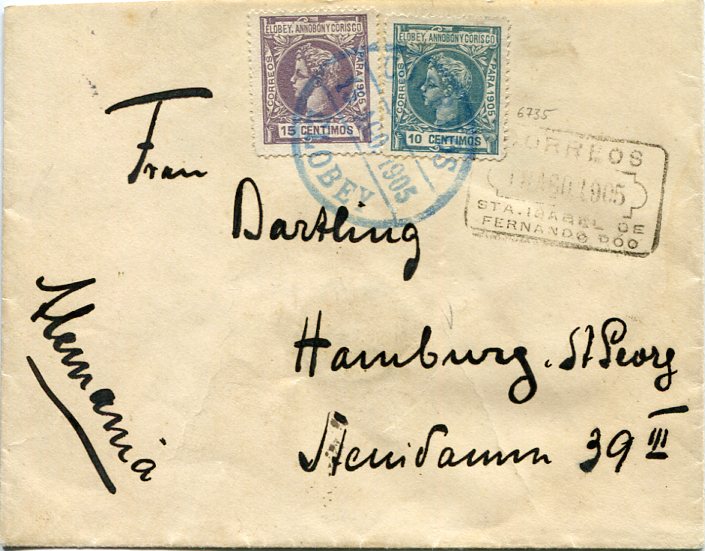 ELOBEY, ANNOBON Y CORISCO
CORREOS
PARA 1905
15 CENTIMOS
ELOBEY, ANNOBON Y CORISCO
CORREOS
PARA 1905
10 CENTIMOS
1905
ELOBEY
6735
CORREOS
AGO 1905
STA. ISABEL DE
FERNANDO POO
Frau
Dartling
Hamburg. St Georg
39 III
Alemania